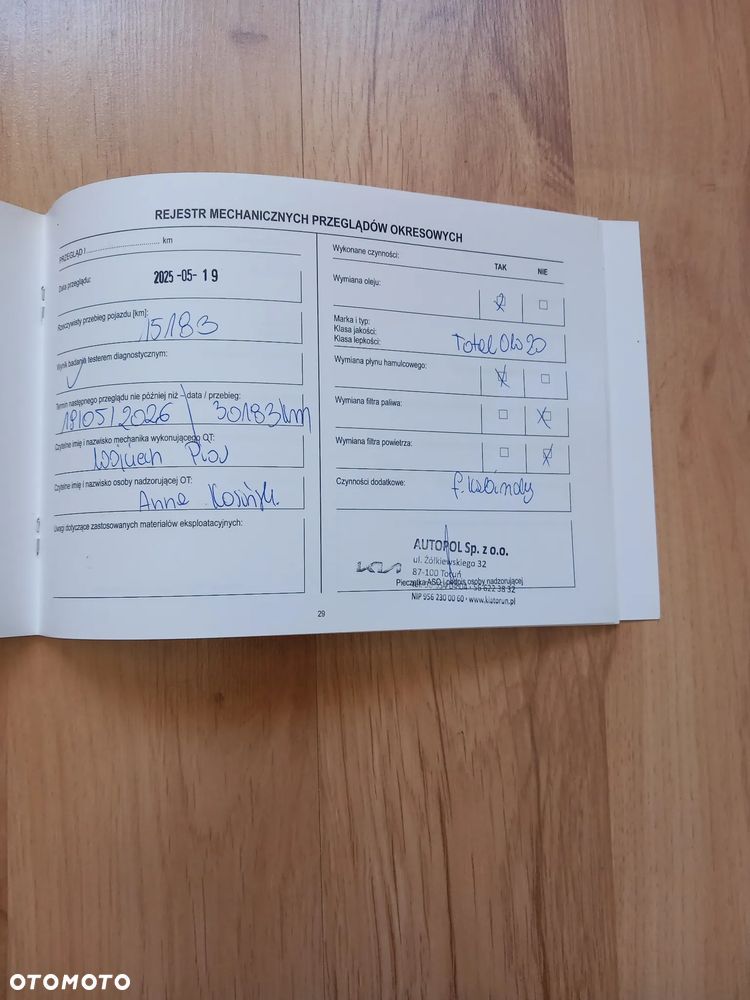 REJESTR MECHANICZNYCH PRZEGLĄDÓW OKRESOWYCH
PRZEGLĄD I .................................. km
Data przeglądu:
2025-05-19
Rzeczywisty przebieg pojazdu [km]:
15183
Wynik badania testerem diagnostycznym:
Termin następnego przeglądu nie później niż – data / przebieg:
19/05/2026 / 30183 km
Czytelne imię i nazwisko mechanika wykonującego OT:
Wojciech
Czytelne imię i nazwisko osoby nadzorującej OT:
Anna
Uwagi dotyczące zastosowanych materiałów eksploatacyjnych:
Wykonane czynności:
TAK NIE
Wymiana oleju:
Marka i typ:
Klasa jakości:
Klasa lepkości:
Total 0W20
Wymiana płynu hamulcowego:
Wymiana filtra paliwa:
Wymiana filtra powietrza:
Czynności dodatkowe:
f. kabiny
AUTOPOL Sp. z o.o.
ul. Żółkiewskiego 32
87-100 Toruń
KIA
Pieczątka ASO i podpis osoby nadzorującej
56 622 38 32
NIP 956 230 00 60 • www.kiatorun.pl
29
OTOMOTO